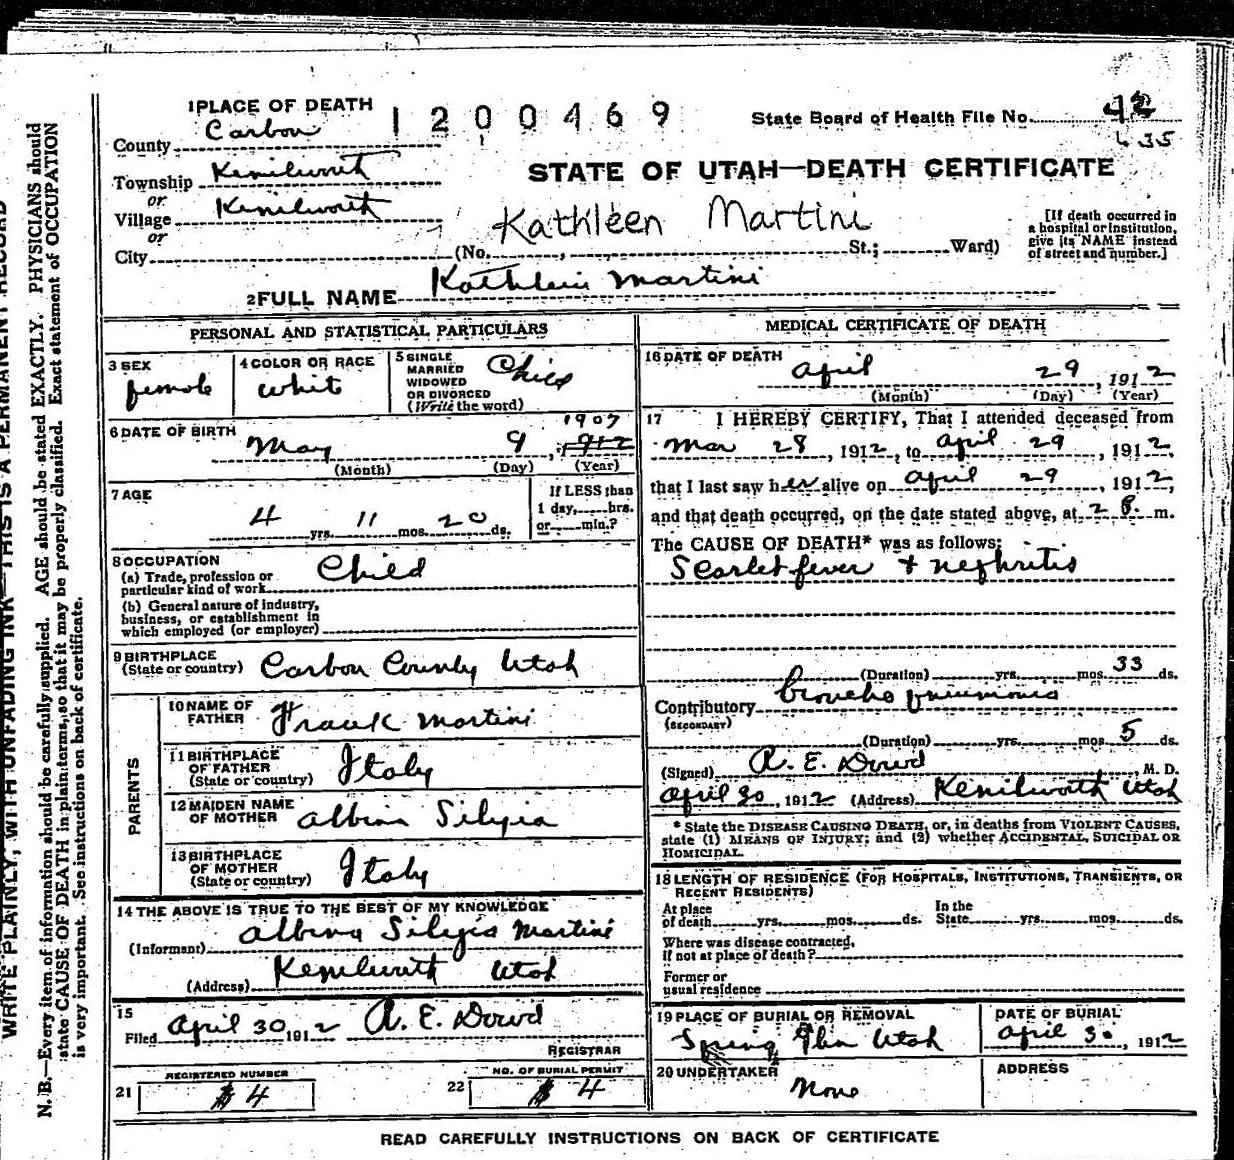 1 PLACE OF DEATH
1200469
State Board of Health File No. 42
635
County Carbon
Township Kenilworth
or
Village Kenilworth
or
City
STATE OF UTAH—DEATH CERTIFICATE
Kathleen Martini
(No. , St.; Ward)
[If death occurred in
a hospital or institution,
give its NAME instead
of street and number.]
2 FULL NAME Kathlein Martini
PERSONAL AND STATISTICAL PARTICULARS
3 SEX
female
4 COLOR OR RACE
White
5 SINGLE
MARRIED
WIDOWED
OR DIVORCED
(Write the word)
Child
6 DATE OF BIRTH
May 9, 1907 1912
(Month) (Day) (Year)
7 AGE
4 yrs. 11 mos. 20 ds.
If LESS than
1 day, hrs.
or min.?
8 OCCUPATION
(a) Trade, profession or
particular kind of work Child
(b) General nature of industry,
business, or establishment in
which employed (or employer)
9 BIRTHPLACE
(State or country) Carbon County Utah
PARENTS
10 NAME OF
FATHER Frank Martini
11 BIRTHPLACE
OF FATHER
(State or country) Italy
12 MAIDEN NAME
OF MOTHER Albina Silysia
13 BIRTHPLACE
OF MOTHER
(State or country) Italy
14 THE ABOVE IS TRUE TO THE BEST OF MY KNOWLEDGE
(Informant) Albina Silysia Martini
(Address) Kenilworth Utah
15
Filed April 30 1912 A. E. Dowd
REGISTRAR
REGISTERED NUMBER
21 4
NO. OF BURIAL PERMIT
22 4
MEDICAL CERTIFICATE OF DEATH
16 DATE OF DEATH
April 29, 1912
(Month) (Day) (Year)
17 I HEREBY CERTIFY, That I attended deceased from
Mar 28, 1912, to April 29, 1912,
that I last saw her alive on April 29, 1912,
and that death occurred, on the date stated above, at 2 P. m.
The CAUSE OF DEATH* was as follows:
Scarlet fever + nephritis
(Duration) yrs. mos. 33 ds.
Contributory Broncho pneumonia
(SECONDARY)
(Duration) yrs. mos. 5 ds.
(Signed) A. E. Dowd, M. D.
April 30, 1912 (Address) Kenilworth Utah
* State the DISEASE CAUSING DEATH, or, in deaths from VIOLENT CAUSES,
state (1) MEANS OF INJURY; and (2) whether ACCIDENTAL, SUICIDAL OR
HOMICIDAL.
18 LENGTH OF RESIDENCE (FOR HOSPITALS, INSTITUTIONS, TRANSIENTS, OR
RECENT RESIDENTS)
At place
of death yrs. mos. ds.
In the
State yrs. mos. ds.
Where was disease contracted,
if not at place of death?
Former or
usual residence
19 PLACE OF BURIAL OR REMOVAL
Spring Glin Utah
DATE OF BURIAL
April 30, 1912
20 UNDERTAKER
None
ADDRESS
READ CAREFULLY INSTRUCTIONS ON BACK OF CERTIFICATE
WRITE PLAINLY, WITH UNFADING INK—THIS IS A PERMANENT RECORD
N. B.—Every item of information should be carefully supplied. AGE should be stated EXACTLY. PHYSICIANS should
state CAUSE OF DEATH in plain terms, so that it may be properly classified. Exact statement of OCCUPATION
is very important. See instructions on back of certificate.